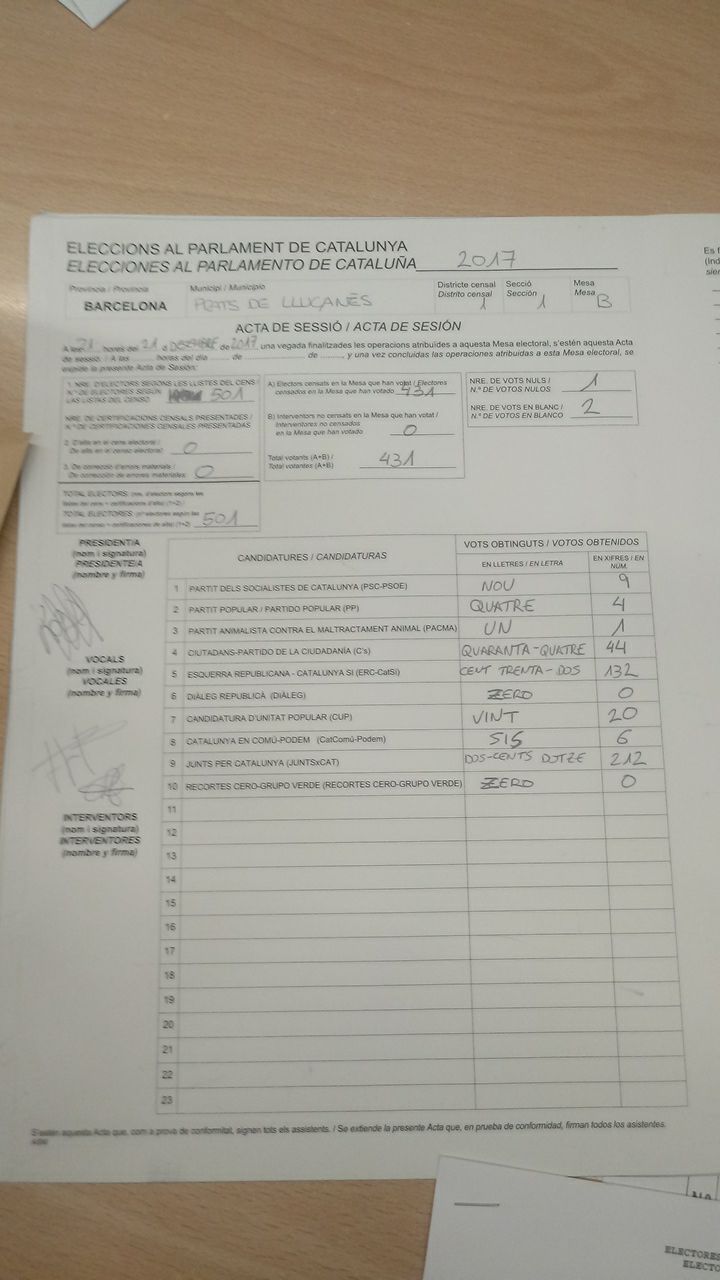 ELECCIONS AL PARLAMENT DE CATALUNYA
ELECCIONES AL PARLAMENTO DE CATALUÑA 2017
Província / Provincia Municipi / Municipio Districte censal Secció Mesa
Distrito censal Sección Mesa
BARCELONA PRATS DE LLUÇANÈS 1 1 B
ACTA DE SESSIÓ / ACTA DE SESIÓN
A les 21 hores del 21 d DESEMBRE de 2017, una vegada finalitzades les operacions atribuïdes a aquesta Mesa electoral, s'estén aquesta Acta
de sessió. / A las ........ horas del día ........ de ........ de ........, y una vez concluidas las operaciones atribuidas a esta Mesa electoral, se
expide la presente Acta de Sesión:
1. NRE. D'ELECTORS SEGONS LES LLISTES DEL CENS /
N.º DE ELECTORES SEGÚN
LAS LISTAS DEL CENSO 501
NRE. DE CERTIFICACIONS CENSALS PRESENTADES /
N.º DE CERTIFICACIONES CENSALES PRESENTADAS
2. D'alta en el cens electoral /
De alta en el censo electoral 0
3. De correcció d'errors materials /
De corrección de errores materiales 0
TOTAL ELECTORS:
TOTAL ELECTORES: 501
A) Electors censats en la Mesa que han votat / Electores
censados en la Mesa que han votado 431
B) Interventors no censats en la Mesa que han votat /
Interventores no censados
en la Mesa que han votado 0
Total votants (A+B) /
Total votantes (A+B) 431
NRE. DE VOTS NULS /
N.º DE VOTOS NULOS 1
NRE. DE VOTS EN BLANC /
N.º DE VOTOS EN BLANCO 2
PRESIDENT/A
(nom i signatura)
PRESIDENTE/A
(nombre y firma)
VOCALS
(nom i signatura)
VOCALES
(nombre y firma)
INTERVENTORS
(nom i signatura)
INTERVENTORES
(nombre y firma)
CANDIDATURES / CANDIDATURAS VOTS OBTINGUTS / VOTOS OBTENIDOS
EN LLETRES / EN LETRA EN XIFRES / EN NÚM.
1 PARTIT DELS SOCIALISTES DE CATALUNYA (PSC-PSOE) NOU 9
2 PARTIT POPULAR / PARTIDO POPULAR (PP) QUATRE 4
3 PARTIT ANIMALISTA CONTRA EL MALTRACTAMENT ANIMAL (PACMA) UN 1
4 CIUTADANS-PARTIDO DE LA CIUDADANÍA (C's) QUARANTA-QUATRE 44
5 ESQUERRA REPUBLICANA - CATALUNYA SÍ (ERC-CatSí) CENT TRENTA-DOS 132
6 DIÀLEG REPUBLICÀ (DIÀLEG) ZERO 0
7 CANDIDATURA D'UNITAT POPULAR (CUP) VINT 20
8 CATALUNYA EN COMÚ-PODEM (CatComú-Podem) SIS 6
9 JUNTS PER CATALUNYA (JUNTSxCAT) DOS-CENTS DOTZE 212
10 RECORTES CERO-GRUPO VERDE (RECORTES CERO-GRUPO VERDE) ZERO 0
11
12
13
14
15
16
17
18
19
20
21
22
23
S'estén aquesta Acta que, com a prova de conformitat, signen tots els assistents. / Se extiende la presente Acta que, en prueba de conformidad, firman todos los asistentes.
ELECTORES
ELECTO